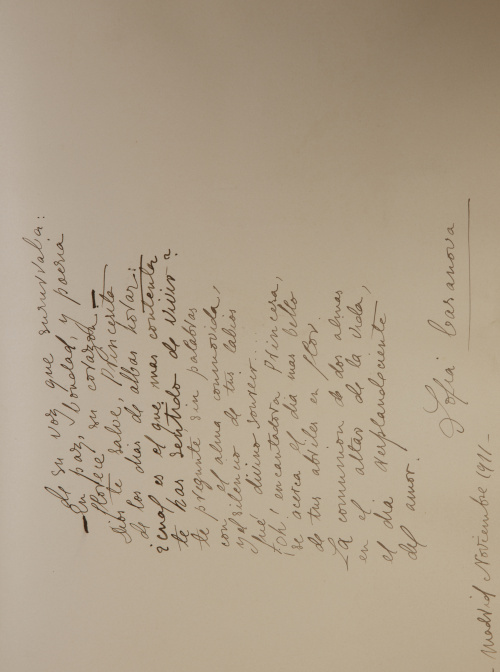 De su voz que susurraba:
— En paz, bondad, y poesia
florece su corazon —
Dios te salve, Princesita
de los dias de albas horas:
¿cual es el que mas contenta
te has sentido de vivir?
te pregunte sin palabras
con el alma conmovida,
y el silencio de tus labios
fue divino sonreir....
¡Oh, encantadora Princesa,
se acerca el dia mas bello
de tus abriles en flor.
La communion de dos almas
en el altar de la vida,
el dia resplandeciente
del amor.
Sofia Casanova
- Madrid Noviembre 1911 -